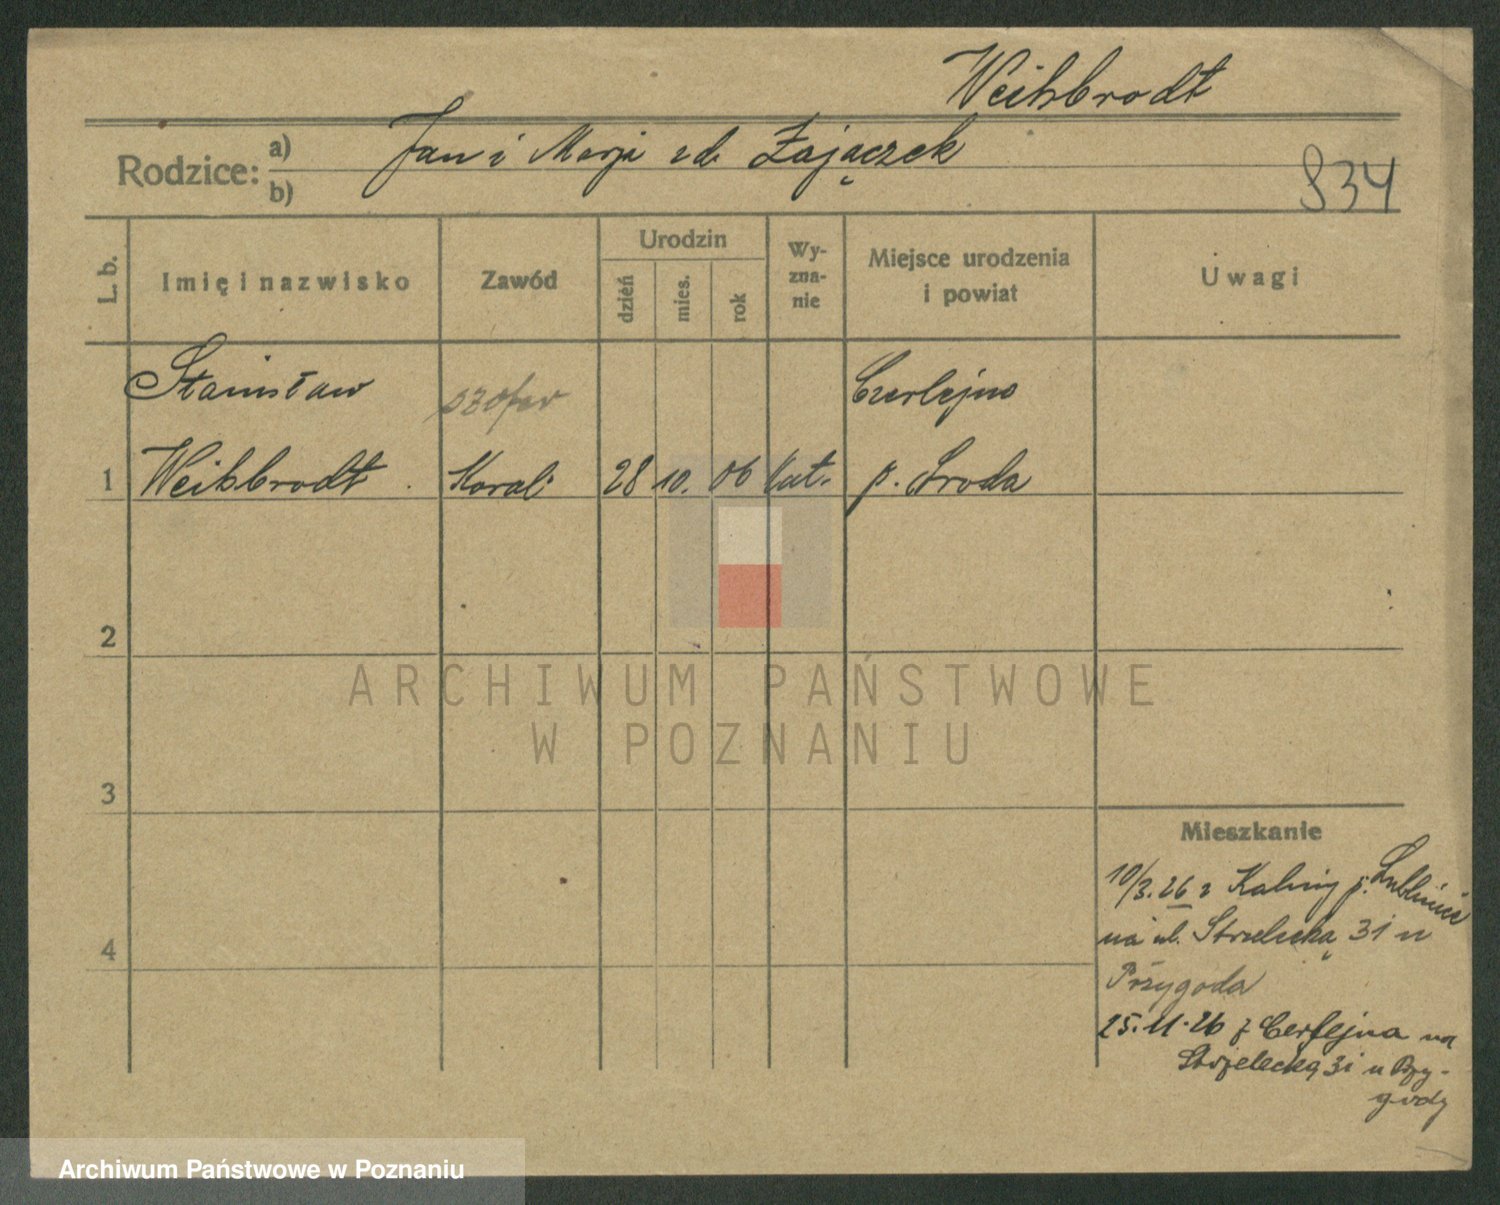 Weihbrodt
Rodzice: a) Jan i Marja zd. Zajączek
b)
934
L. b.
Imię i nazwisko
Zawód
Urodzin
dzień
mies.
rok
Wy-
zna-
nie
Miejsce urodzenia
i powiat
Uwagi
Stanisław szofer Czerlejno
1 Weihbrodt Koval. 28 10. 06 kat. p. Sroda
2
3
4
Mieszkanie
10/3.26 z Kaliny p. Lubliniec
na ul. Strzelecką 31 u
Przygoda
25.11.26 z Czerlejna na
Strzelecką 31 u Przy-
gody
ARCHIWUM PAŃSTWOWE
W POZNANIU
Archiwum Państwowe w Poznaniu